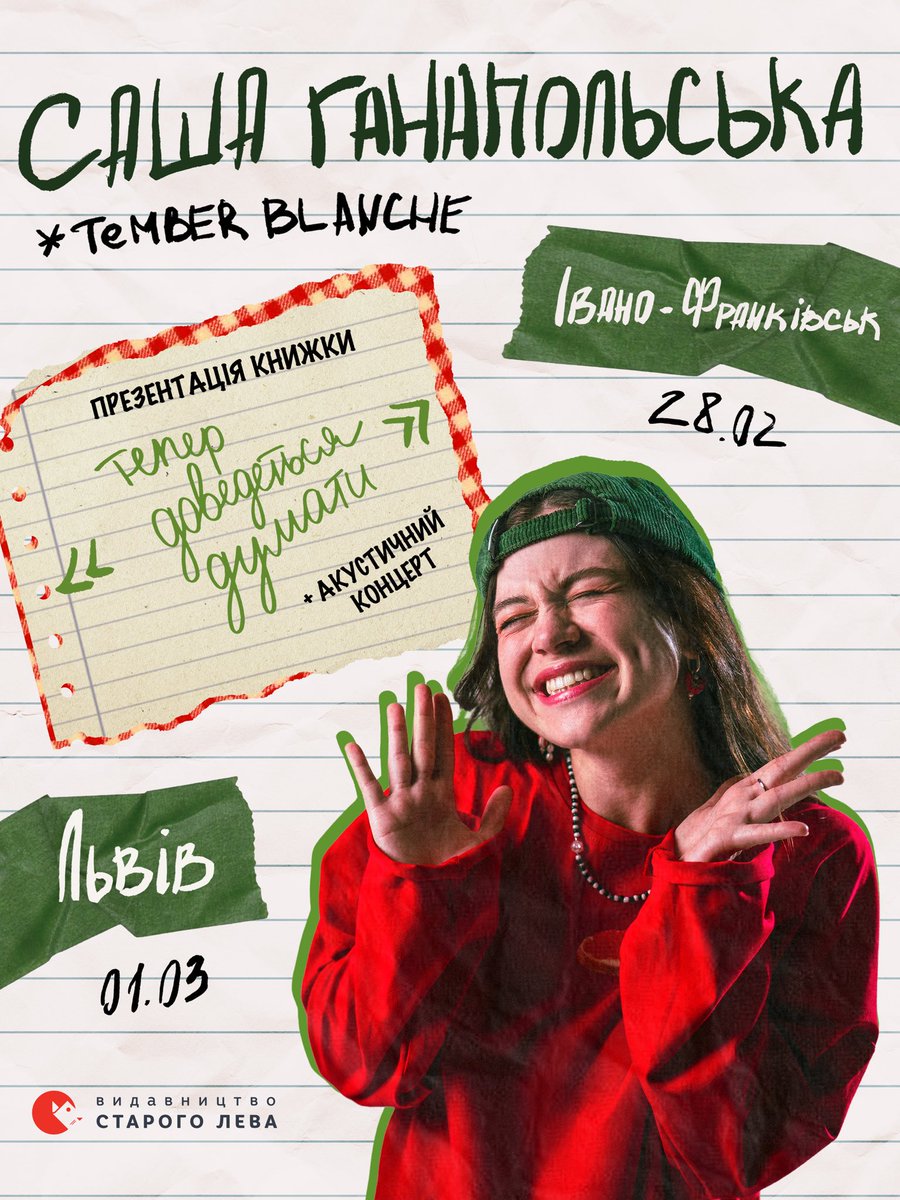 САША ГАНАПОЛЬСЬКА
*TeMBER BLANCHE
Івано-Франківськ
28.02
ПРЕЗЕНТАЦІЯ КНИЖКИ
«тепер
доведеться
думати»
+ АКУСТИЧНИЙ
КОНЦЕРТ
Львів
01.03
ВИДАВНИЦТВО
СТАРОГО ЛЕВА